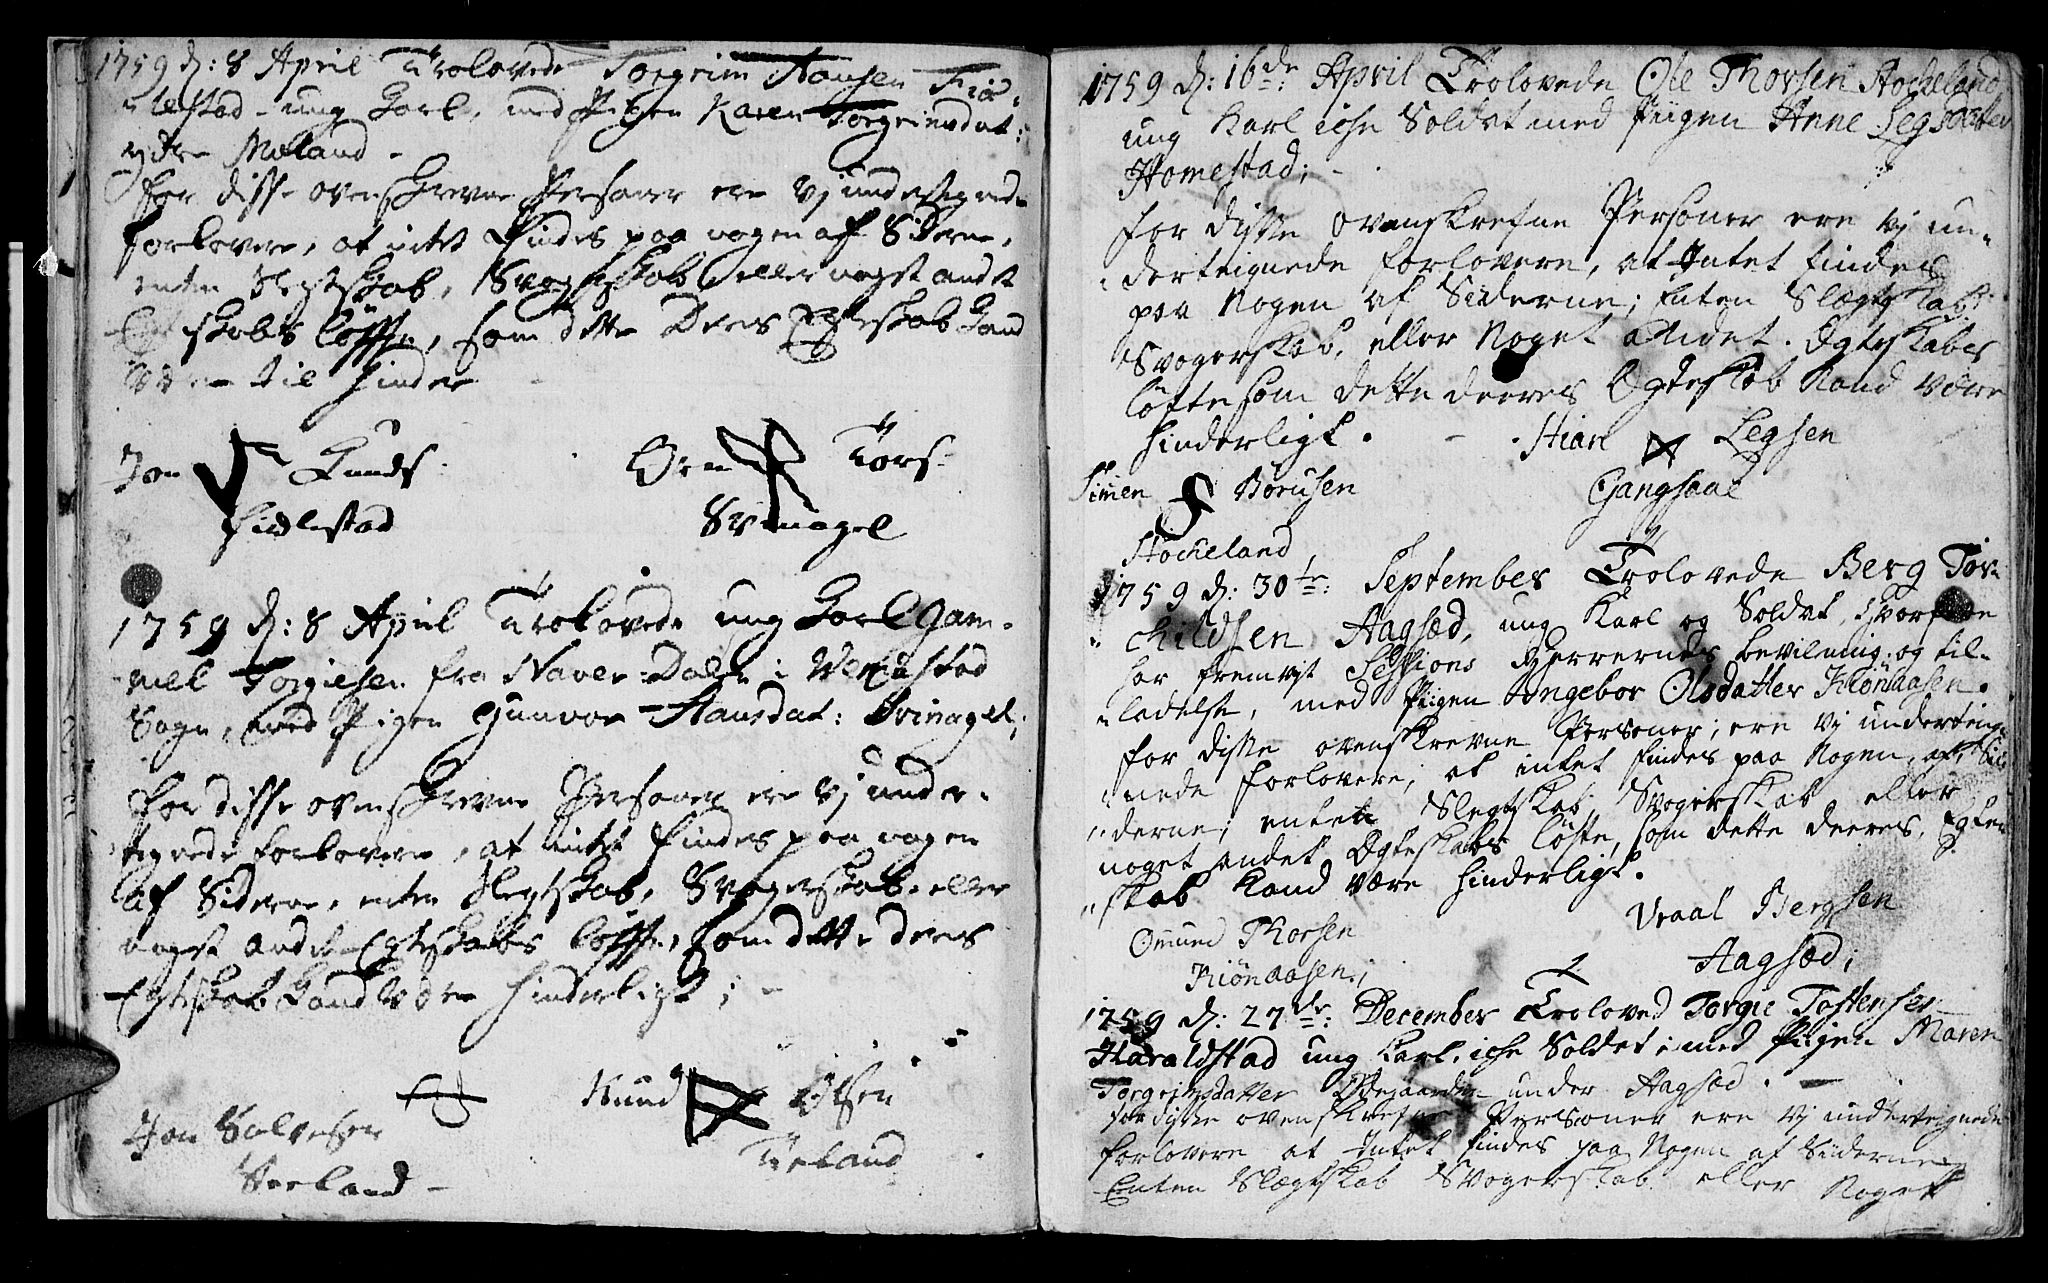 1759 d: 8 April Trolovede Torgrim Hansen Fid-
lestad ung Karl, med Pigen Karen Torgrimsdat:
ydre Moland -
For disse ovenskrevne Personer ere Vj undertegnede
Forlovere, at intet Findes paa nogen af Siderne,
enten Slegtskab, Svogerskab eller noget andet
Egteskabs Løffte, som dette Deres Egteskab Kand
være til Hinder
Jon Knuds:
Tors:
Fidlestad
Svenagel
1759 d: 8 April Trolovede ung Karl Gam-
mel Torgiesen fra Naver-Dalen i
Sogn, med Pigen Gunvor Hansdat: Svinagel;
For disse ovenskrevne Personer ere Vj under-
tegnede Forlovere, at intet Findes paa nogen
af Siderne, enten Slegtskab, Svogerskab, eller
noget andet Egteskabs Løffte, som dette deres
Egteskab Kand være Hinderligt; -
Knud Olsen
Jon Salvesen
Tveland
1759 d: 16de: April Trolovede Ole Thorsen Stocheland
ung Karl iche Soldat med Piigen Anne Legsdatter
Homestad; -
For disse ovenskrefne Personer ere vj un-
derteignede Forlovere, at Intet Findes
paa Nogen af Siiderne; Enten Slægtskab:
Svogerskab, eller Noget andet. Ægteskabes
løfte som dette deeres Ægteskab Kand være
hinderligt. - Legsen
Simen Børusen Gangsaae
Stocheland
1759 d: 30te: September Trolovede Berg Tor-
childsen Aagsæd, ung Karl og Soldat, hvorfore
har fremvist Sessions Herrernes bevilning og til-
ladelse, med Piigen Ingebor Olsdatter Kiønaasen.
For disse ovenskrevne Personer; ere vj underteig-
nede Forlovere; at intet findes paa Nogen af Sii-
derne; enten Slegtskab, Svogerskab eller
noget andet Ægteskabs løfte, som dette deeres, Egte-
skab Kand være hinderligt.
Omund Thorsen Vraal Bergsen
Kiønaasen; Aagsæd;
1759 d: 27de: December Troloved Torgie Tostensen
Haraldstad ung Karl, iche Soldat; med Piigen Maren
Torgeimsdatter under Aagsæd. -
For disse ovenskrefne Personer ere vj underteignede
Forlovere at Intet findes paa Nogen af Siiderne
Enten Slægtskab Svogerskab eller Noget